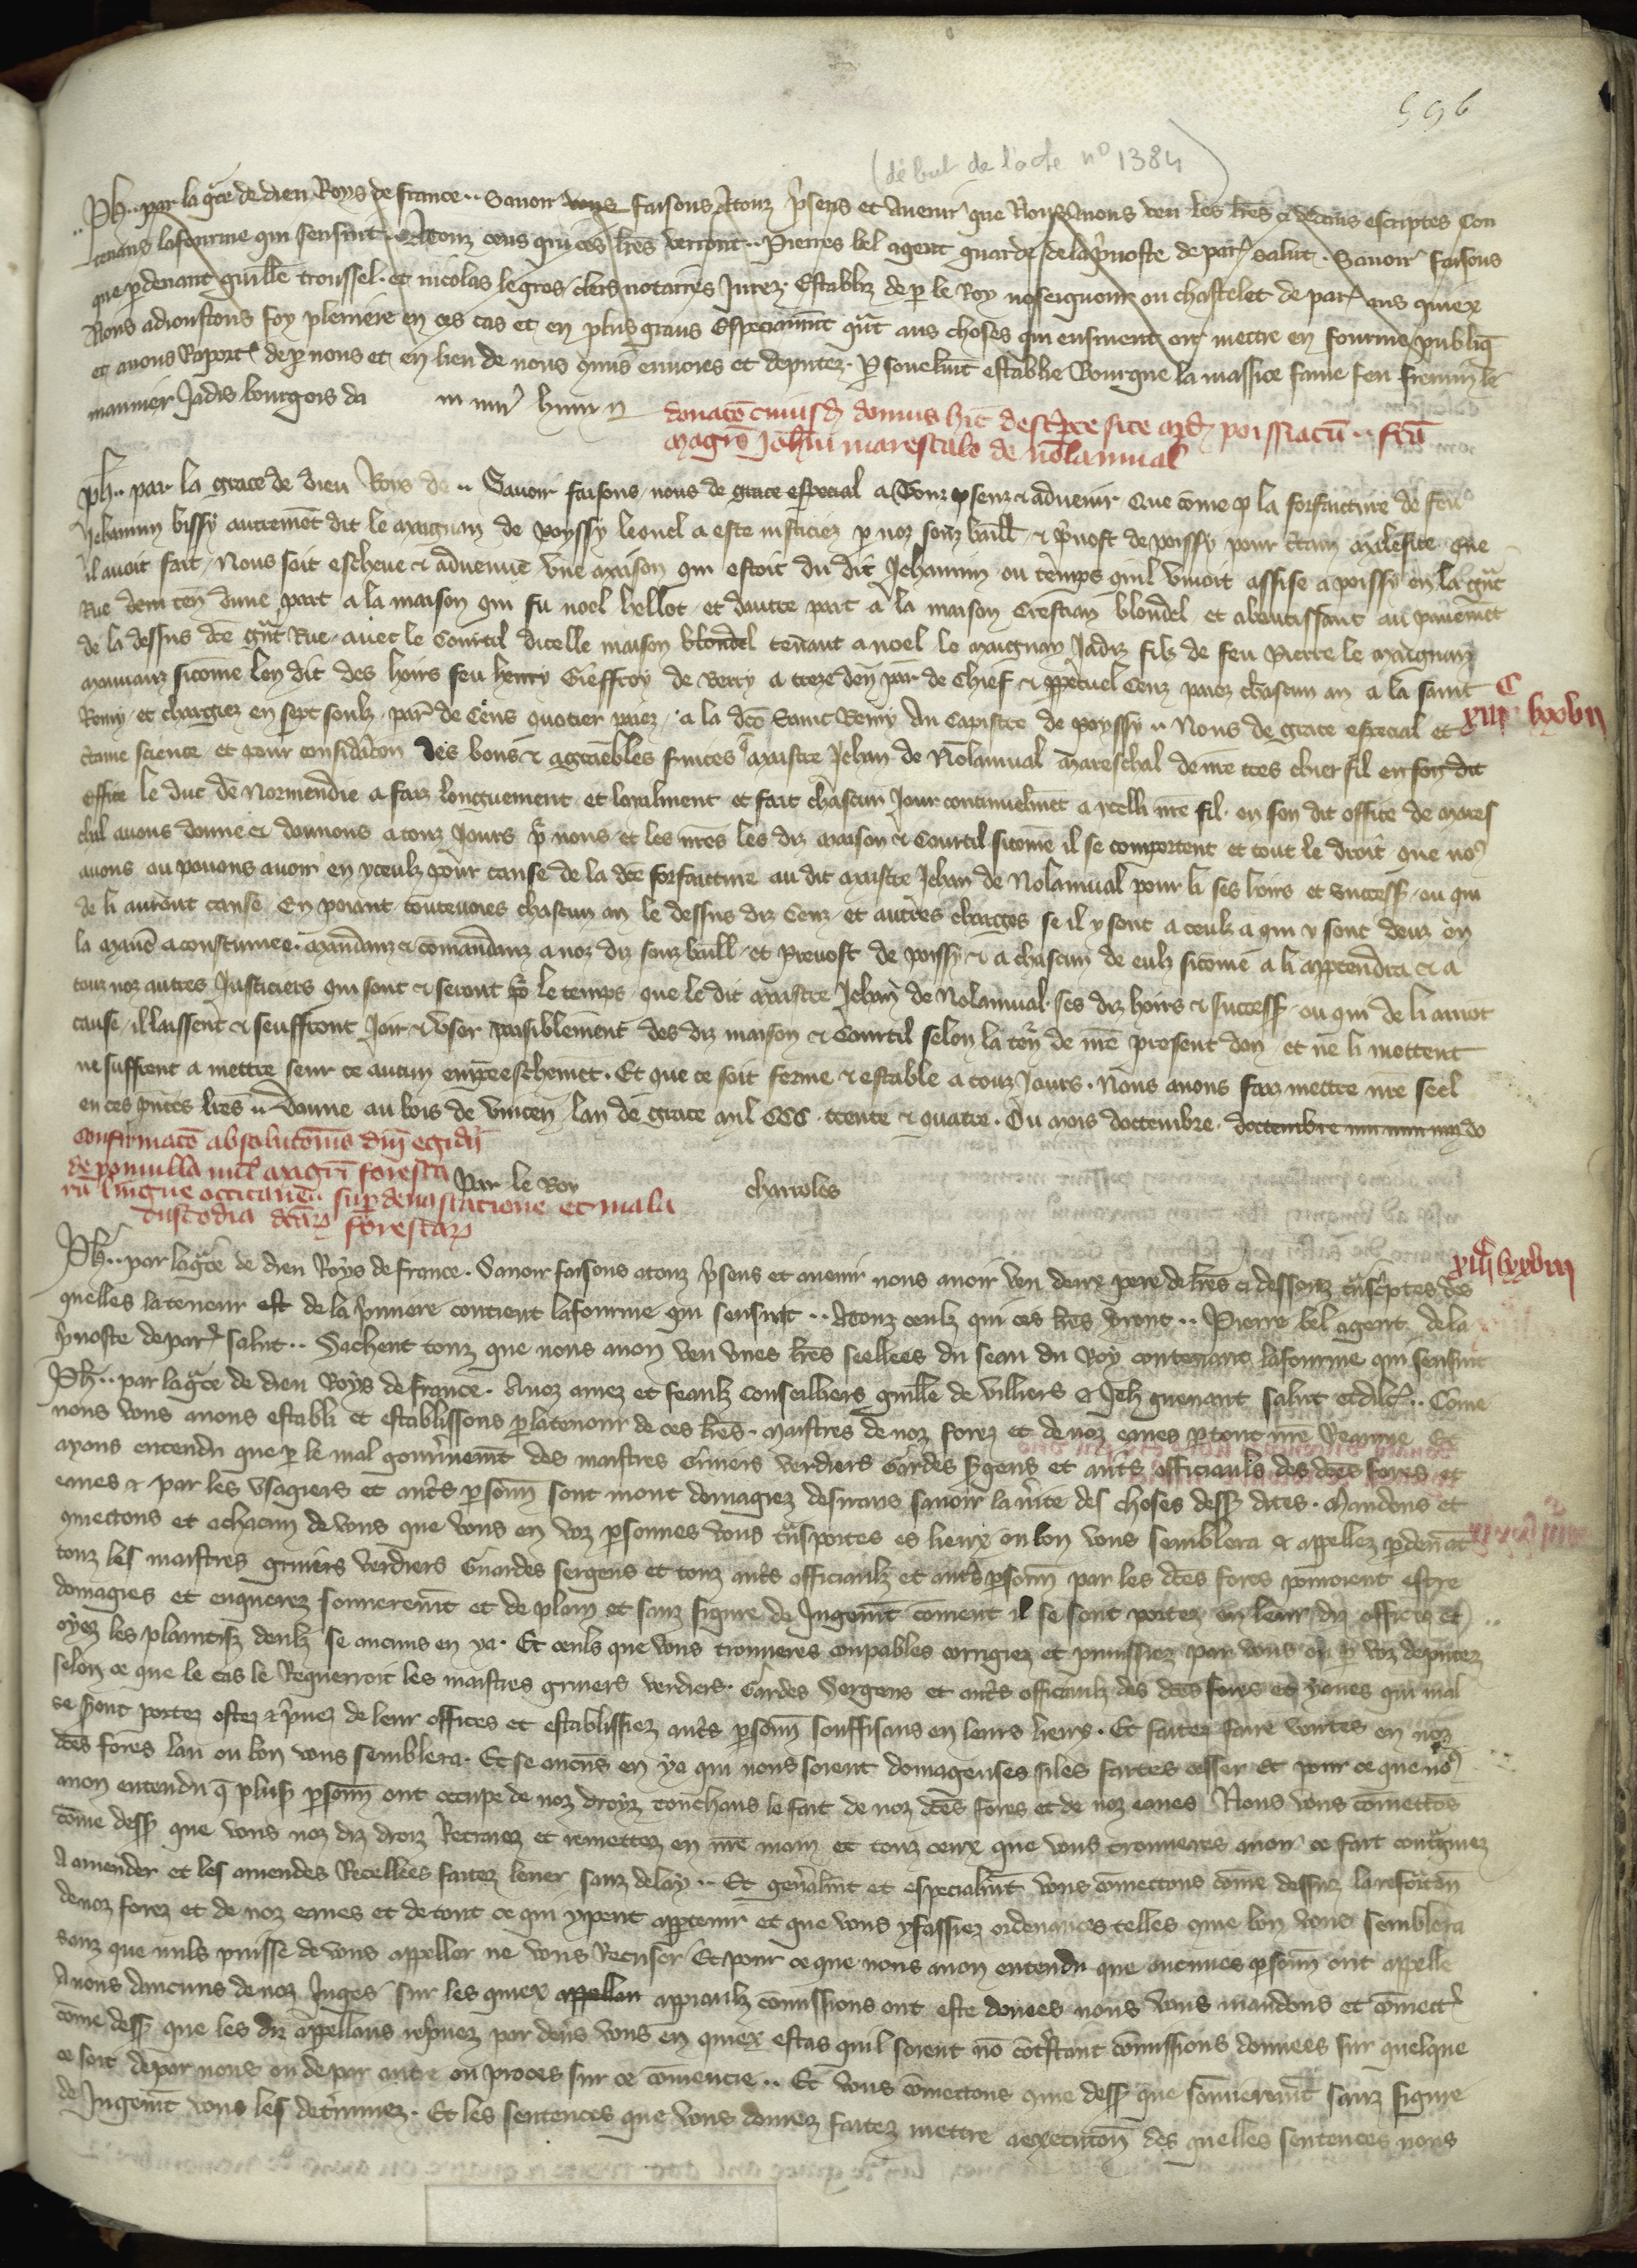 596
(début de l'acte n° 1384)
Ph.. par la gce de dieu Roys de france.. Savoir vous faisons Atouz p̃sens et avenir que Nous Avons veu les lr̃es ci dedens escriptes Con
tenans la fourme qui sensuit.. Atouz ceus qui ces lr̃es verront.. Pierres bel agent guarde de la p̃voste de par̃ salut. Savoir faisons
que p̱devant guill̃e troussel. et nicolas le gros clers notaires Jurez Establiz de p̱ le Roy noseigneur ou chastelet de par̃ aus quiex
Nous adioustons foy pleniere en ces cas et en plus grans Especiaumt̃ q̃nt aus choses qui ensuient oir mettre en fourme publiq̃
et avons Raport̃ de p̱ nous et en lieu de nous quns envoies et deputez. P̱sonelmt̃ establie Bourgue la massice fame feu fremin le
maunier Jadis bourgois da
donacõ cuiusd̃ domus hic descr̃pte site ap̃d poissiacũ.. fc̃a
magrõ Joh̃i marescalo de nõlamval̃
Ph.. par la grace de dieu Roys de.. Savoir faisons nous de grace especial a Touz p̱senz & advenir Que cõme p̱ la forfaicture de feu
Jehannin bissy autremẽt dit le maignan de Poyssy lequel a este iusticiez p̱ noz souz baill̃ & p̃vost de poissy pour c̃tain malefice que
il avoit fait, Nous soit escheue & advenue une maison qui estoit du dit Jehannin ou temps quil vivoit assise a poissy en la g̃nt
Rue dem ten̄ dune part a la maison qui fu noel bellot et dautre part a la maison Crestian blondel et aboutissant au pavemẽt
de la dessus dc̃e g̃nt Rue avec le Courtil dicelle maison blondel tenant a noel le maignan Jadiz filz de feu Pierre le maignan
mouvanz sicome len dit des hoirs feu henry Gieffroy de Verry a treze den̄ par̃ de Chief & p̱petuel Cens paiez chascun an a la saint
Remy et chargiez en sept soulz par̃ de Cens quotier paiez a la dc̃e Saint Remy du Capistre de poyssy.. Nous de grace especial et
xiiic lxxvii
c̃taine science et pour consid̃acõn des bons & agreables s̃vices Maistre Jehan de Nõlamval mareschal de nr̃e tres chier fil en son dit
Office le duc de Normendie a faiz longuement et loialment et fait chascun Jour continuelmẽt a ycelli nr̃e fil. en son dit office de mares
chal avons donne & donnons a touz Jours p̱ nous et les nr̃es les diz maison & Courtil sicome il se comportent et tout le droit que no9
avons ou povons avoir en yceulz pour cause de la dc̃e forfaicture au dit maistre Jehan de Nolamval pour li ses hoirs et success̃ ou qui
de li auront cause En paiant toutevoies chascun an le dessus diz Cenz et autres charges se il y sont a ceulz a qui y sont deuz en
la manẽ acoustumee. Mandanz & comandanz a noz diz souz baill̃ et Prevost de poissy & a chascun de eulz sicomẽ a li appartendra & a
touz noz autres Justiciers qui sont & seront p̱ le temps que le dit maistre Jehan de Nolamval. ses diz hoirs & success̃ ou qui de li auront
cause, il laissent & seuffrent Joir & User paisiblement des diz maison & Courtil selon la ten̄ de nr̃e present don et ne li mettent
ne suffrent a mettre seur ce aucun empeeschemẽt. Et que ce soit ferme & estable a touz Jours. Nous avons faiz mettre nr̃e seel
en ces p̃ntes lr̃es.. Donne au bois de vincen̄ lan de grace mil CCC. trente & quatre. Ou mois doctembre. doctembre
confirmacõ absolutionis dñi egidii
de pomulla mil̃ magr̃i foresta
rũ lingue occitane.. sup̱ devastatione et mala
custodia dc̃arũ forestarũ
Par le Roy
charroles
xiiic lxxviii
Ph.. par la gc̃e de dieu Roys de france. Savoir faisons a touz p̃sens et avenir nous avoir veu deux peire de lr̃es ci dessouz t̃nsc̃ptes des
quelles la teneur est de la p̃miere contient la fourme qui sensuit.. Atouz ceulz qui ces lr̃es v̱ront.. Pierre bel agent de la
p̃voste de par̃ salut.. Sachent touz que nous avon veu unes lr̃es seellees du seau du Roy contenans la fourme qui sensuit
Ph.. par la gc̃e de dieu Roys de france. Anoz amez et feaulz Conseilliers guill̃e de villiers & Jeh̃ guenant salut et dilc̃.. Cõme
nous vous avons establi et establissons p̱ la teneur de ces lr̃es. maistres de noz forez et de noz eaues p̱tout nr̃e Reaume Et
ayons entendu que p̱ le mal gouv̱nemt̃ des maistres Gruiers verdiers Gardes sergens et aut̃s officiauls des dc̃es fores et
eaues & par les usagiers et aut̃s p̱soñn sont mout domagiez desirans savoir la v̱ite des choses dess̃ dites. Mandons et
cmectons et a chacun de vous que vous en voz p̱sonnes vous t̃nsportes es lieux ou bon vous semblera & appellez p̱devãt
touz les maistres gruiers verdiers Guardes sergens et touz aut̃s officiaulz et aut̃s p̱soñn par les dc̃es fores pourroient estre
domagies et enquerez sommeremt̃ et de plain et sanz figure de Jugemt̃ coment il se sont portez en leur diz offices et
oyez les plaintifz deulz se aucuns en ya. Et ceuls que vous trouveres coupables corrigiez et punissiez par vous ou p̱ voz deputez
selon ce que le cas le Requerroit les maistres gruiers verdiers. Gardes Sergens et aut̃s officiaulz des dc̃es fores et yaues qui mal
se s̱ont portez ostez & p̃vez de leur offices et establissiez aut̃s p̱soñn souffisans en leurs lieux. Et faites faire ventes en noz
dc̃es fores lau ou bon vous semblera. Et se aucũs en ya qui nous soient domageuses si les faites cesser Et pour ce que no9
avon entendu q̃ plus̃ p̱soñn ont occupe de noz droyz touchans le fait de noz dc̃es fores et de noz eaues Nous vous cõmettõs
cõme dess̃ que vous noz diz droiz Retraiez et remettez en nr̃e main et touz ceux que vous trouveres avoir ce fait contr̃aigniez
A amender et les amendes Recellees faitez lever sanz delay.. Et gen̄alm̃t et especialm̃t vous cõmectons cõme dessuz la reform̃acõn
de noz forez et de noz eaues et de tout ce qui y peut apartenir et que vous y fassiez ordenances telles cme bon vous semblera
sanz que nuls puisse de vous appeller ne vous Recuser Et pour ce que nous avon entendu que aucunes p̱soñn ont appelle
A nous daucuns de noz Juges sur les quiex appellan appiaulz cõmissions ont este donees nous vous mandons et cõmett̃
cõme dess̃ que les diz appellans rep̱nez par devs̃ vous en quiex estas quil soient nõ cõt̃stant cõmissions donnees sur quelque
ce soit de par nous ou de par autre ou proces sur ce cõmencie.. Et vous cõmectons cme dess̃ que sõmeremt̃ sanz figure
de Jugemt̃ vous les det̃minez. Et les sentences que vous donrez faitez mettre a execucõn des quelles sentences nous